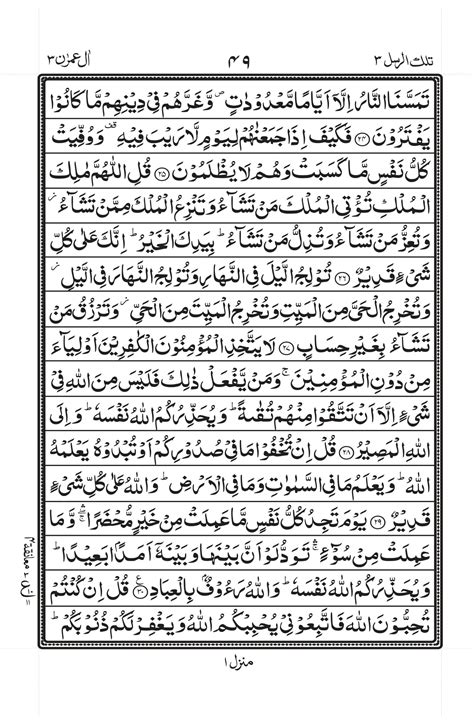 تلك الرسل ٣ ٤٩ اٰل عمرٰن ٣
تَمَسَّنَا النَّارُ اِلَّاۤ اَيَّامًا مَّعْدُوْدٰتٍ ۪ وَّغَرَّهُمْ فِيْ دِيْنِهِمْ مَّا كَانُوْا
يَفْتَرُوْنَ ﴿۲۴﴾ فَكَيْفَ اِذَا جَمَعْنٰهُمْ لِيَوْمٍ لَّا رَيْبَ فِيْهِ ۟ وَوُفِّيَتْ
كُلُّ نَفْسٍ مَّا كَسَبَتْ وَهُمْ لَا يُظْلَمُوْنَ ﴿۲۵﴾ قُلِ اللّٰهُمَّ مٰلِكَ
الْمُلْكِ تُؤْتِي الْمُلْكَ مَنْ تَشَآءُ وَتَنْزِعُ الْمُلْكَ مِمَّنْ تَشَآءُ ؗ
وَتُعِزُّ مَنْ تَشَآءُ وَتُذِلُّ مَنْ تَشَآءُ ؕ بِيَدِكَ الْخَيْرُ ؕ اِنَّكَ عَلٰى كُلِّ
شَيْءٍ قَدِيْرٌ ﴿۲۶﴾ تُوْلِجُ الَّيْلَ فِي النَّهَارِ وَتُوْلِجُ النَّهَارَ فِي الَّيْلِ ؗ
وَتُخْرِجُ الْحَيَّ مِنَ الْمَيِّتِ وَتُخْرِجُ الْمَيِّتَ مِنَ الْحَيِّ ؗ وَتَرْزُقُ مَنْ
تَشَآءُ بِغَيْرِ حِسَابٍ ﴿۲۷﴾ لَا يَتَّخِذِ الْمُؤْمِنُوْنَ الْكٰفِرِيْنَ اَوْلِيَآءَ
مِنْ دُوْنِ الْمُؤْمِنِيْنَ ۚ وَمَنْ يَّفْعَلْ ذٰلِكَ فَلَيْسَ مِنَ اللّٰهِ فِيْ
شَيْءٍ اِلَّاۤ اَنْ تَتَّقُوْا مِنْهُمْ تُقٰىةً ؕ وَيُحَذِّرُكُمُ اللّٰهُ نَفْسَهٗ ؕ وَاِلَى
اللّٰهِ الْمَصِيْرُ ﴿۲۸﴾ قُلْ اِنْ تُخْفُوْا مَا فِيْ صُدُوْرِكُمْ اَوْ تُبْدُوْهُ يَعْلَمْهُ
اللّٰهُ ؕ وَيَعْلَمُ مَا فِي السَّمٰوٰتِ وَمَا فِي الْاَرْضِ ؕ وَاللّٰهُ عَلٰى كُلِّ شَيْءٍ
قَدِيْرٌ ﴿۲۹﴾ يَوْمَ تَجِدُ كُلُّ نَفْسٍ مَّا عَمِلَتْ مِنْ خَيْرٍ مُّحْضَرًا ۛۚ وَّمَا
عَمِلَتْ مِنْ سُوْٓءٍ ۛۚ تَوَدُّ لَوْ اَنَّ بَيْنَهَا وَبَيْنَهٗۤ اَمَدًۢا بَعِيْدًا ؕ
وَيُحَذِّرُكُمُ اللّٰهُ نَفْسَهٗ ؕ وَاللّٰهُ رَءُوْفٌۢ بِالْعِبَادِ ﴿۳۰﴾ قُلْ اِنْ كُنْتُمْ
تُحِبُّوْنَ اللّٰهَ فَاتَّبِعُوْنِيْ يُحْبِبْكُمُ اللّٰهُ وَيَغْفِرْ لَكُمْ ذُنُوْبَكُمْ ؕ
منزل ١